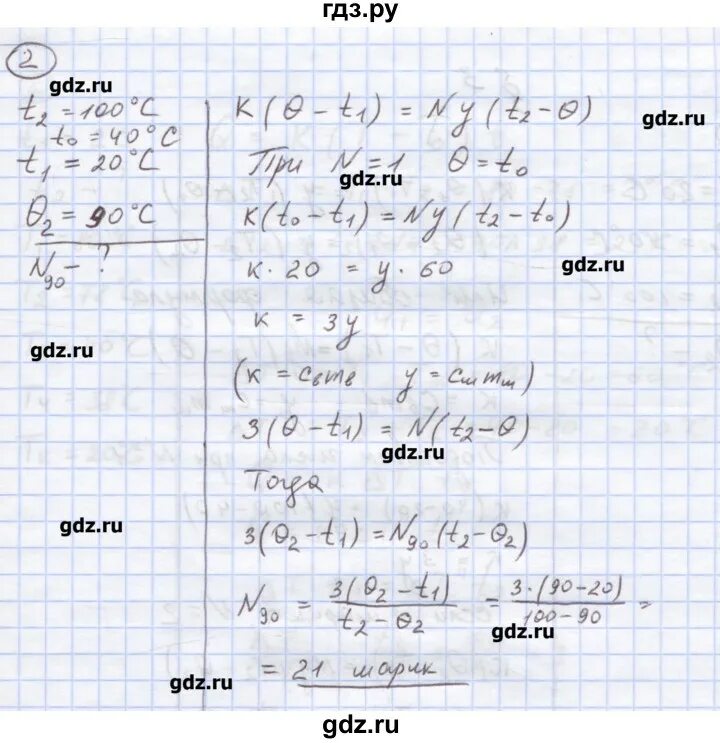 гдз.ру
2
gdz.ru
t₂ = 100°C
t₀ = 40°C
t₁ = 20°C
θ₂ = 90°C
N₉₀ - ?
gdz.ru
gdz.ru
K(θ - t₁) = Ny(t₂ - θ)
gdz.ru
При N = 1 θ = t₀
gdz.ru
K(t₀ - t₁) = Ny(t₂ - t₀)
K · 20 = y · 60
gdz.ru
K = 3y
(K = cвmв y = cшmш)
3(θ - t₁) = N(t₂ - θ)
gdz.ru
Тогда
3(θ₂ - t₁) = N₉₀(t₂ - θ₂)
N₉₀ = 3(θ₂ - t₁) / t₂ - θ₂ = 3·(90-20) / 100-90 =
gdz.ru
= 21 шарик
gdz.ru
gdz.ru